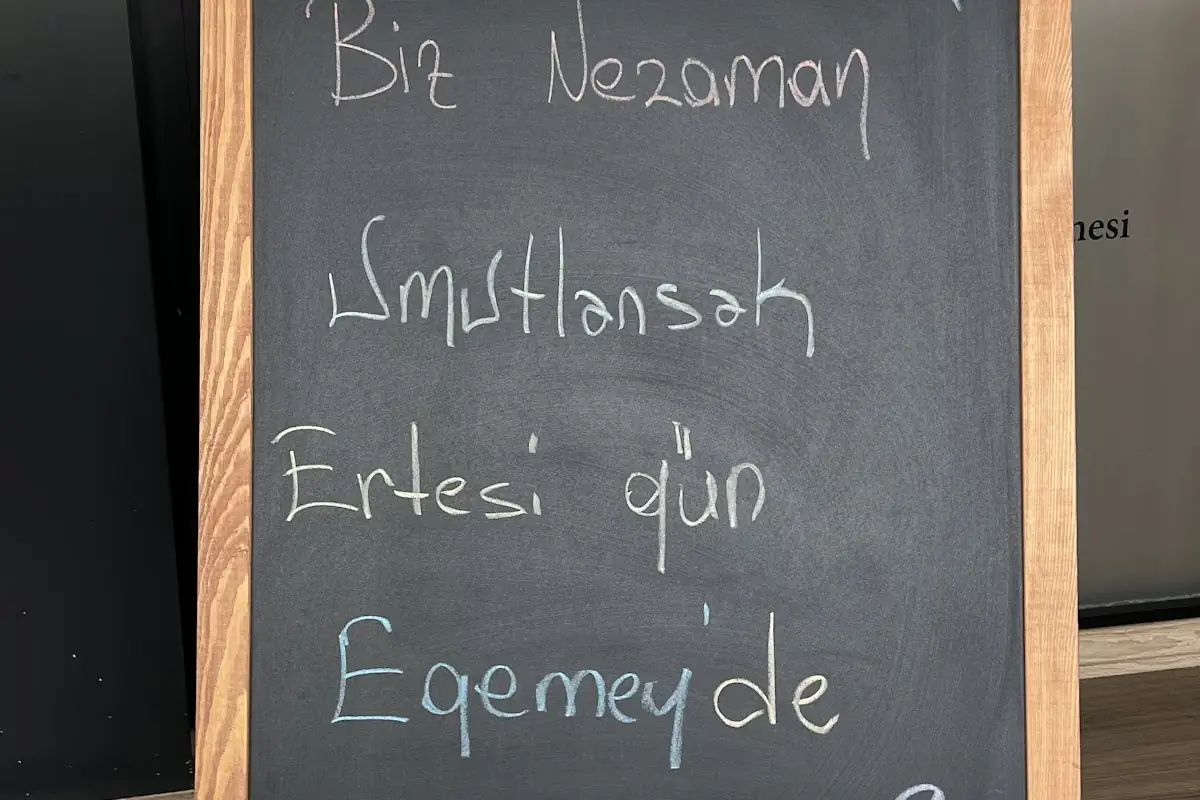 Biz Nezaman
Umutlansak
Ertesi gün
Egemey'de
nesi